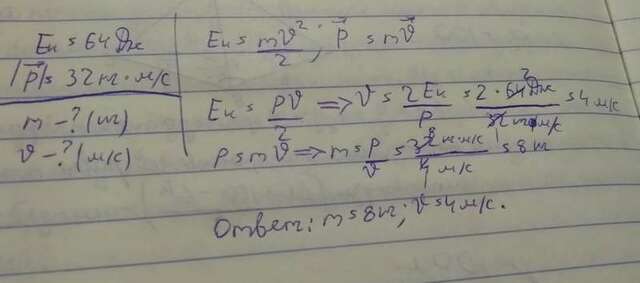 Eк = 64 Дж
|p⃗| = 32 кг·м/с
m - ? (кг)
v - ? (м/с)
Eк = mv²/2; p⃗ = mv⃗
Eк = pv/2 => v = 2Eк/p = 2·64 Дж/32 кг·м/с = 4 м/с
p = mv => m = p/v = 32 кг·м/с/4 м/с = 8 кг
Ответ: m = 8 кг; v = 4 м/с.